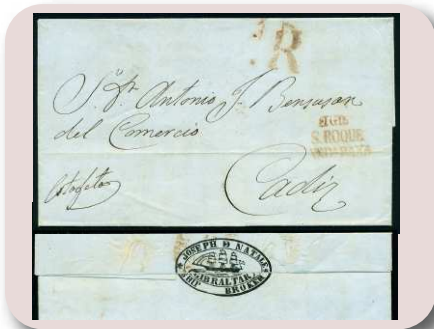 R
Sr. Dn. Antonio J. Bensusan
del Comercio
S. ROQUE
ANDA BAXA
Cadiz
JOSEPH D NATALE
GIBRALTAR
SHIP BROKER